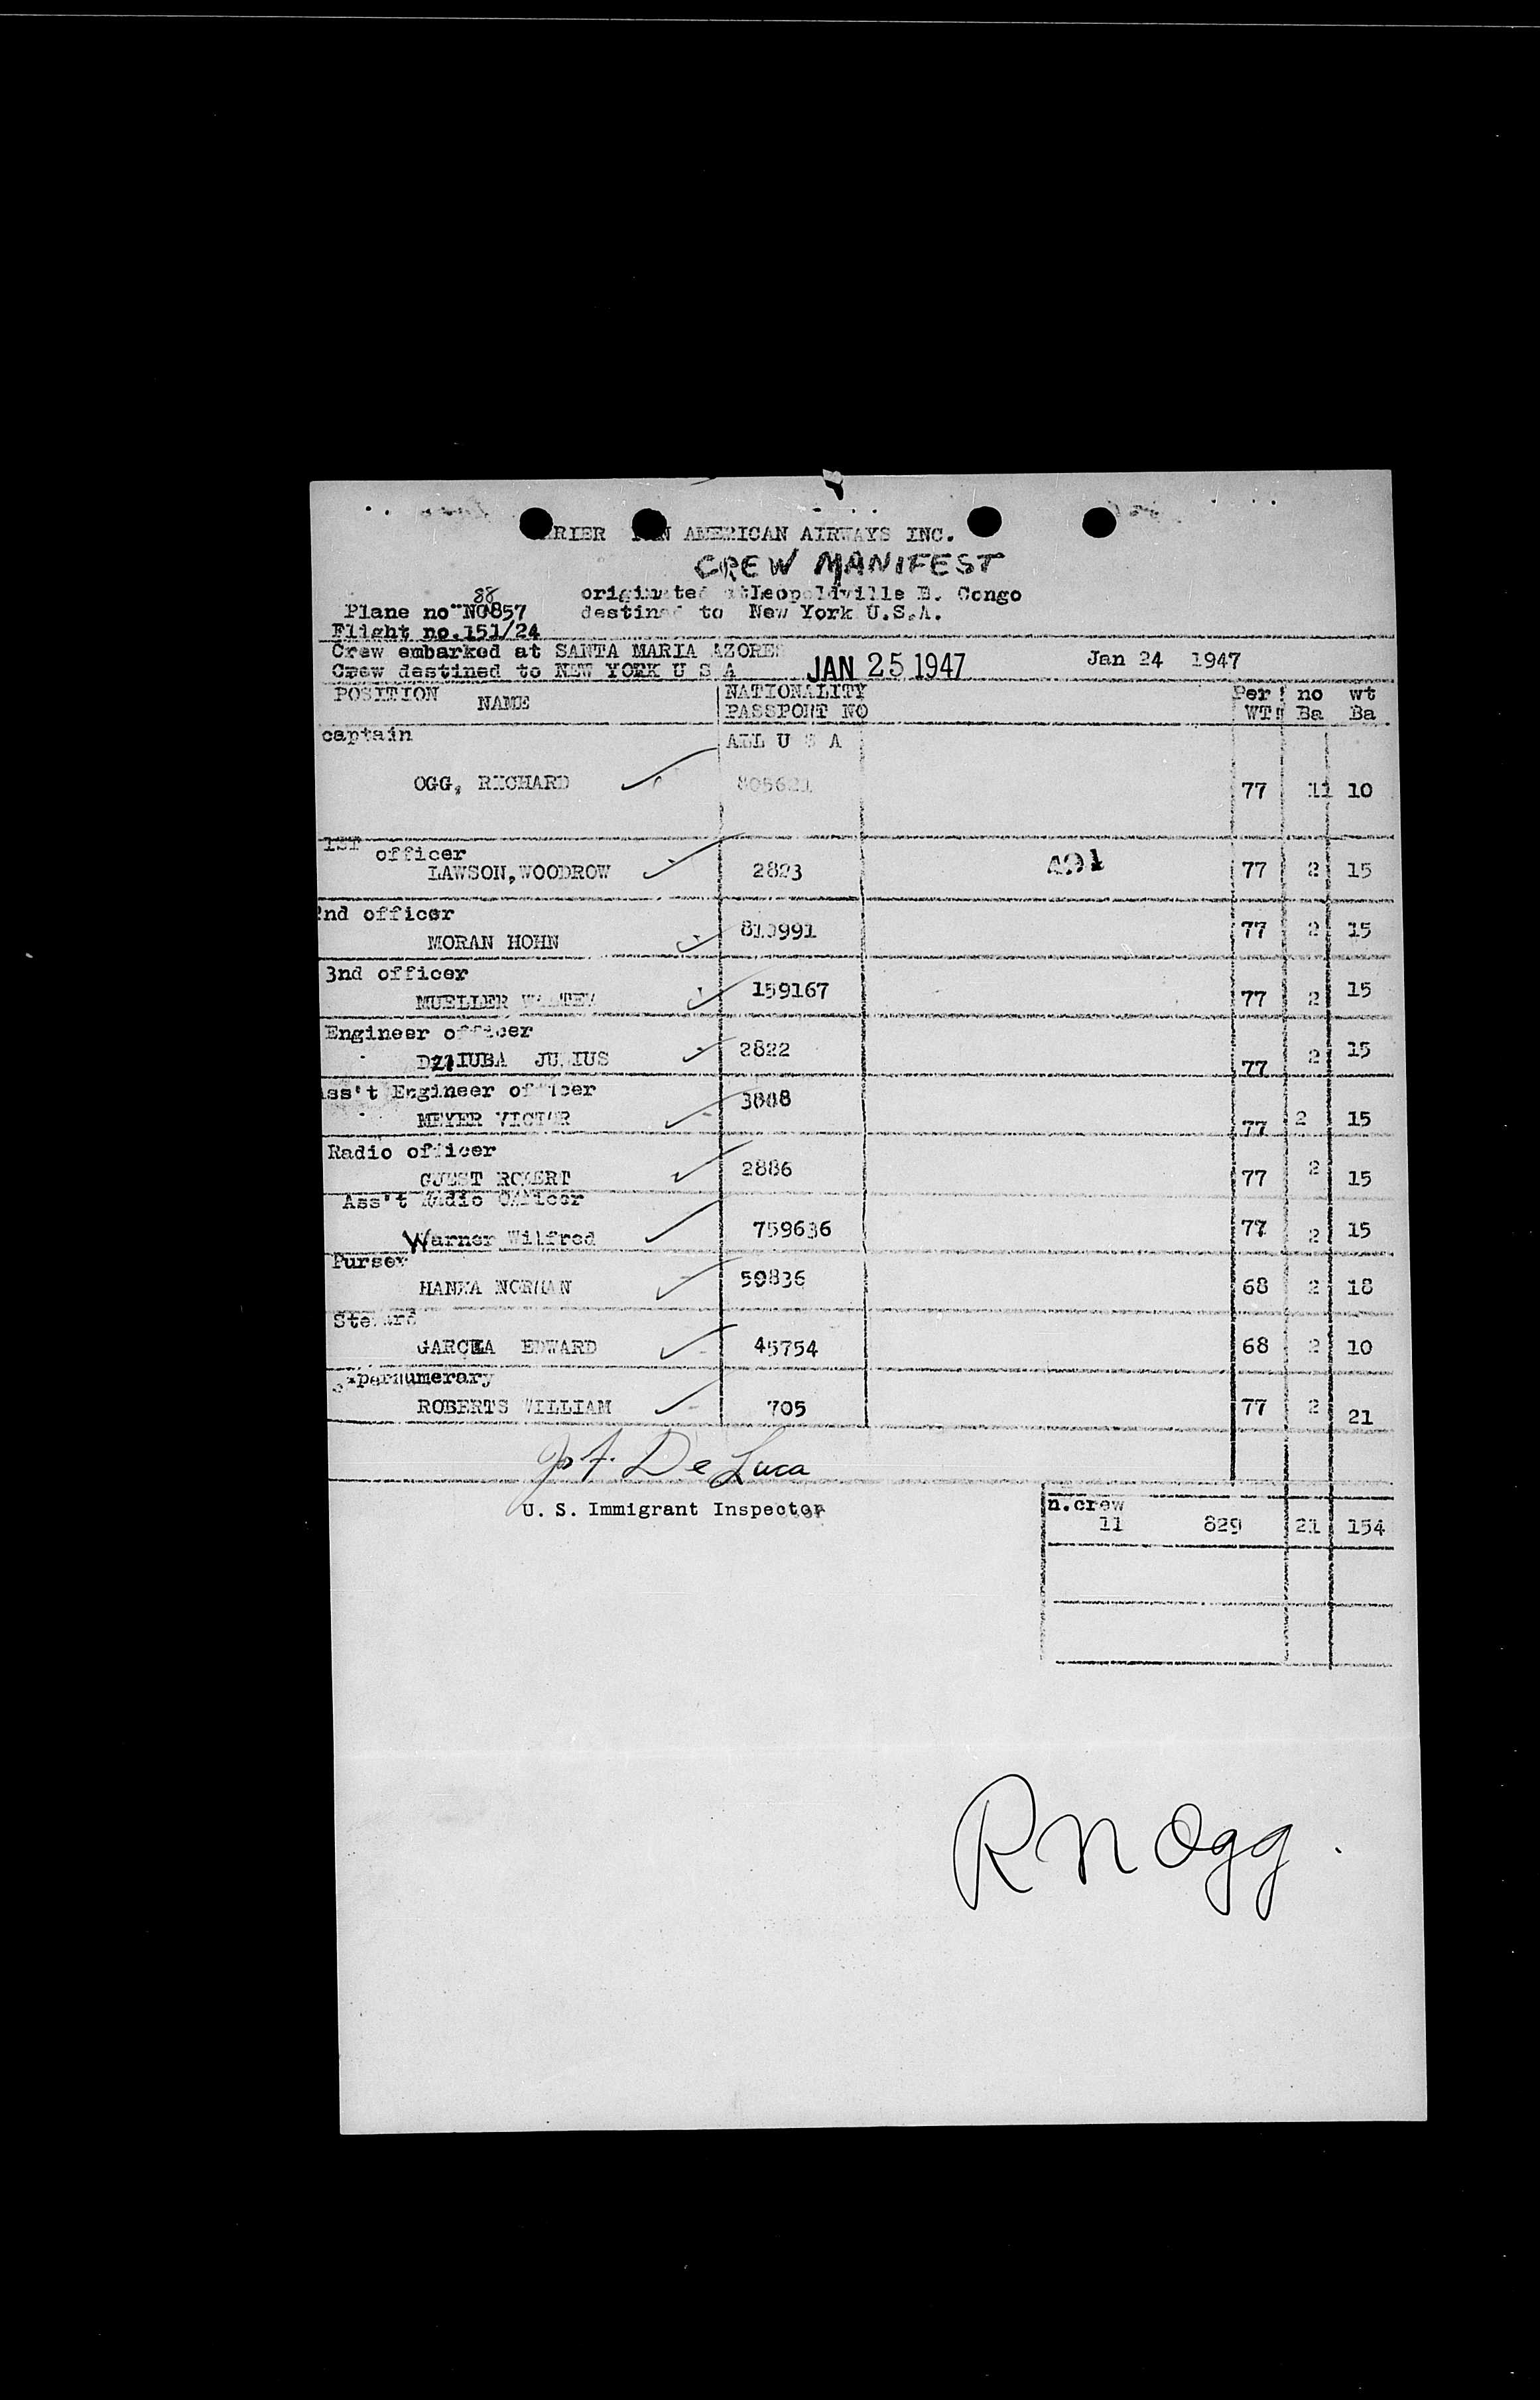 RIER PAN AMERICAN AIRWAYS INC.
CREW MANIFEST
originated at Leopoldville B. Congo
88
Plane no NC857 destined to New York U.S.A.
Flight no.151/24
Crew embarked at SANTA MARIA AZORES
Crew destined to NEW YORK U S A JAN 25 1947 Jan 24 1947
POSITION NAME NATIONALITY PASSPORT NO Per WT no Ba wt Ba
captain ALL U S A
OGG, RICHARD 805621 77 11 10
1ST officer
LAWSON,WOODROW 2823 A91 77 2 15
2nd officer
MORAN HOHN 77 2 15
3nd officer
MUELLER 159167 77 2 15
Engineer officer
JULIUS 2822 77 2 15
Ass't Engineer officer
MEYER VICTOR 77 2 15
Radio officer
GUEST ROBERT 2886 77 2 15
Ass't Radio Officer
Warner Wilfred 759636 77 2 15
Purser
NORMAN 50836 68 2 18
Steward
GARCIA EDWARD 45754 68 2 10
Supernumerary
ROBERTS WILLIAM 705 77 2 21
De Luca
U. S. Immigrant Inspector
n.crew
11 829 21 154
R N Ogg.